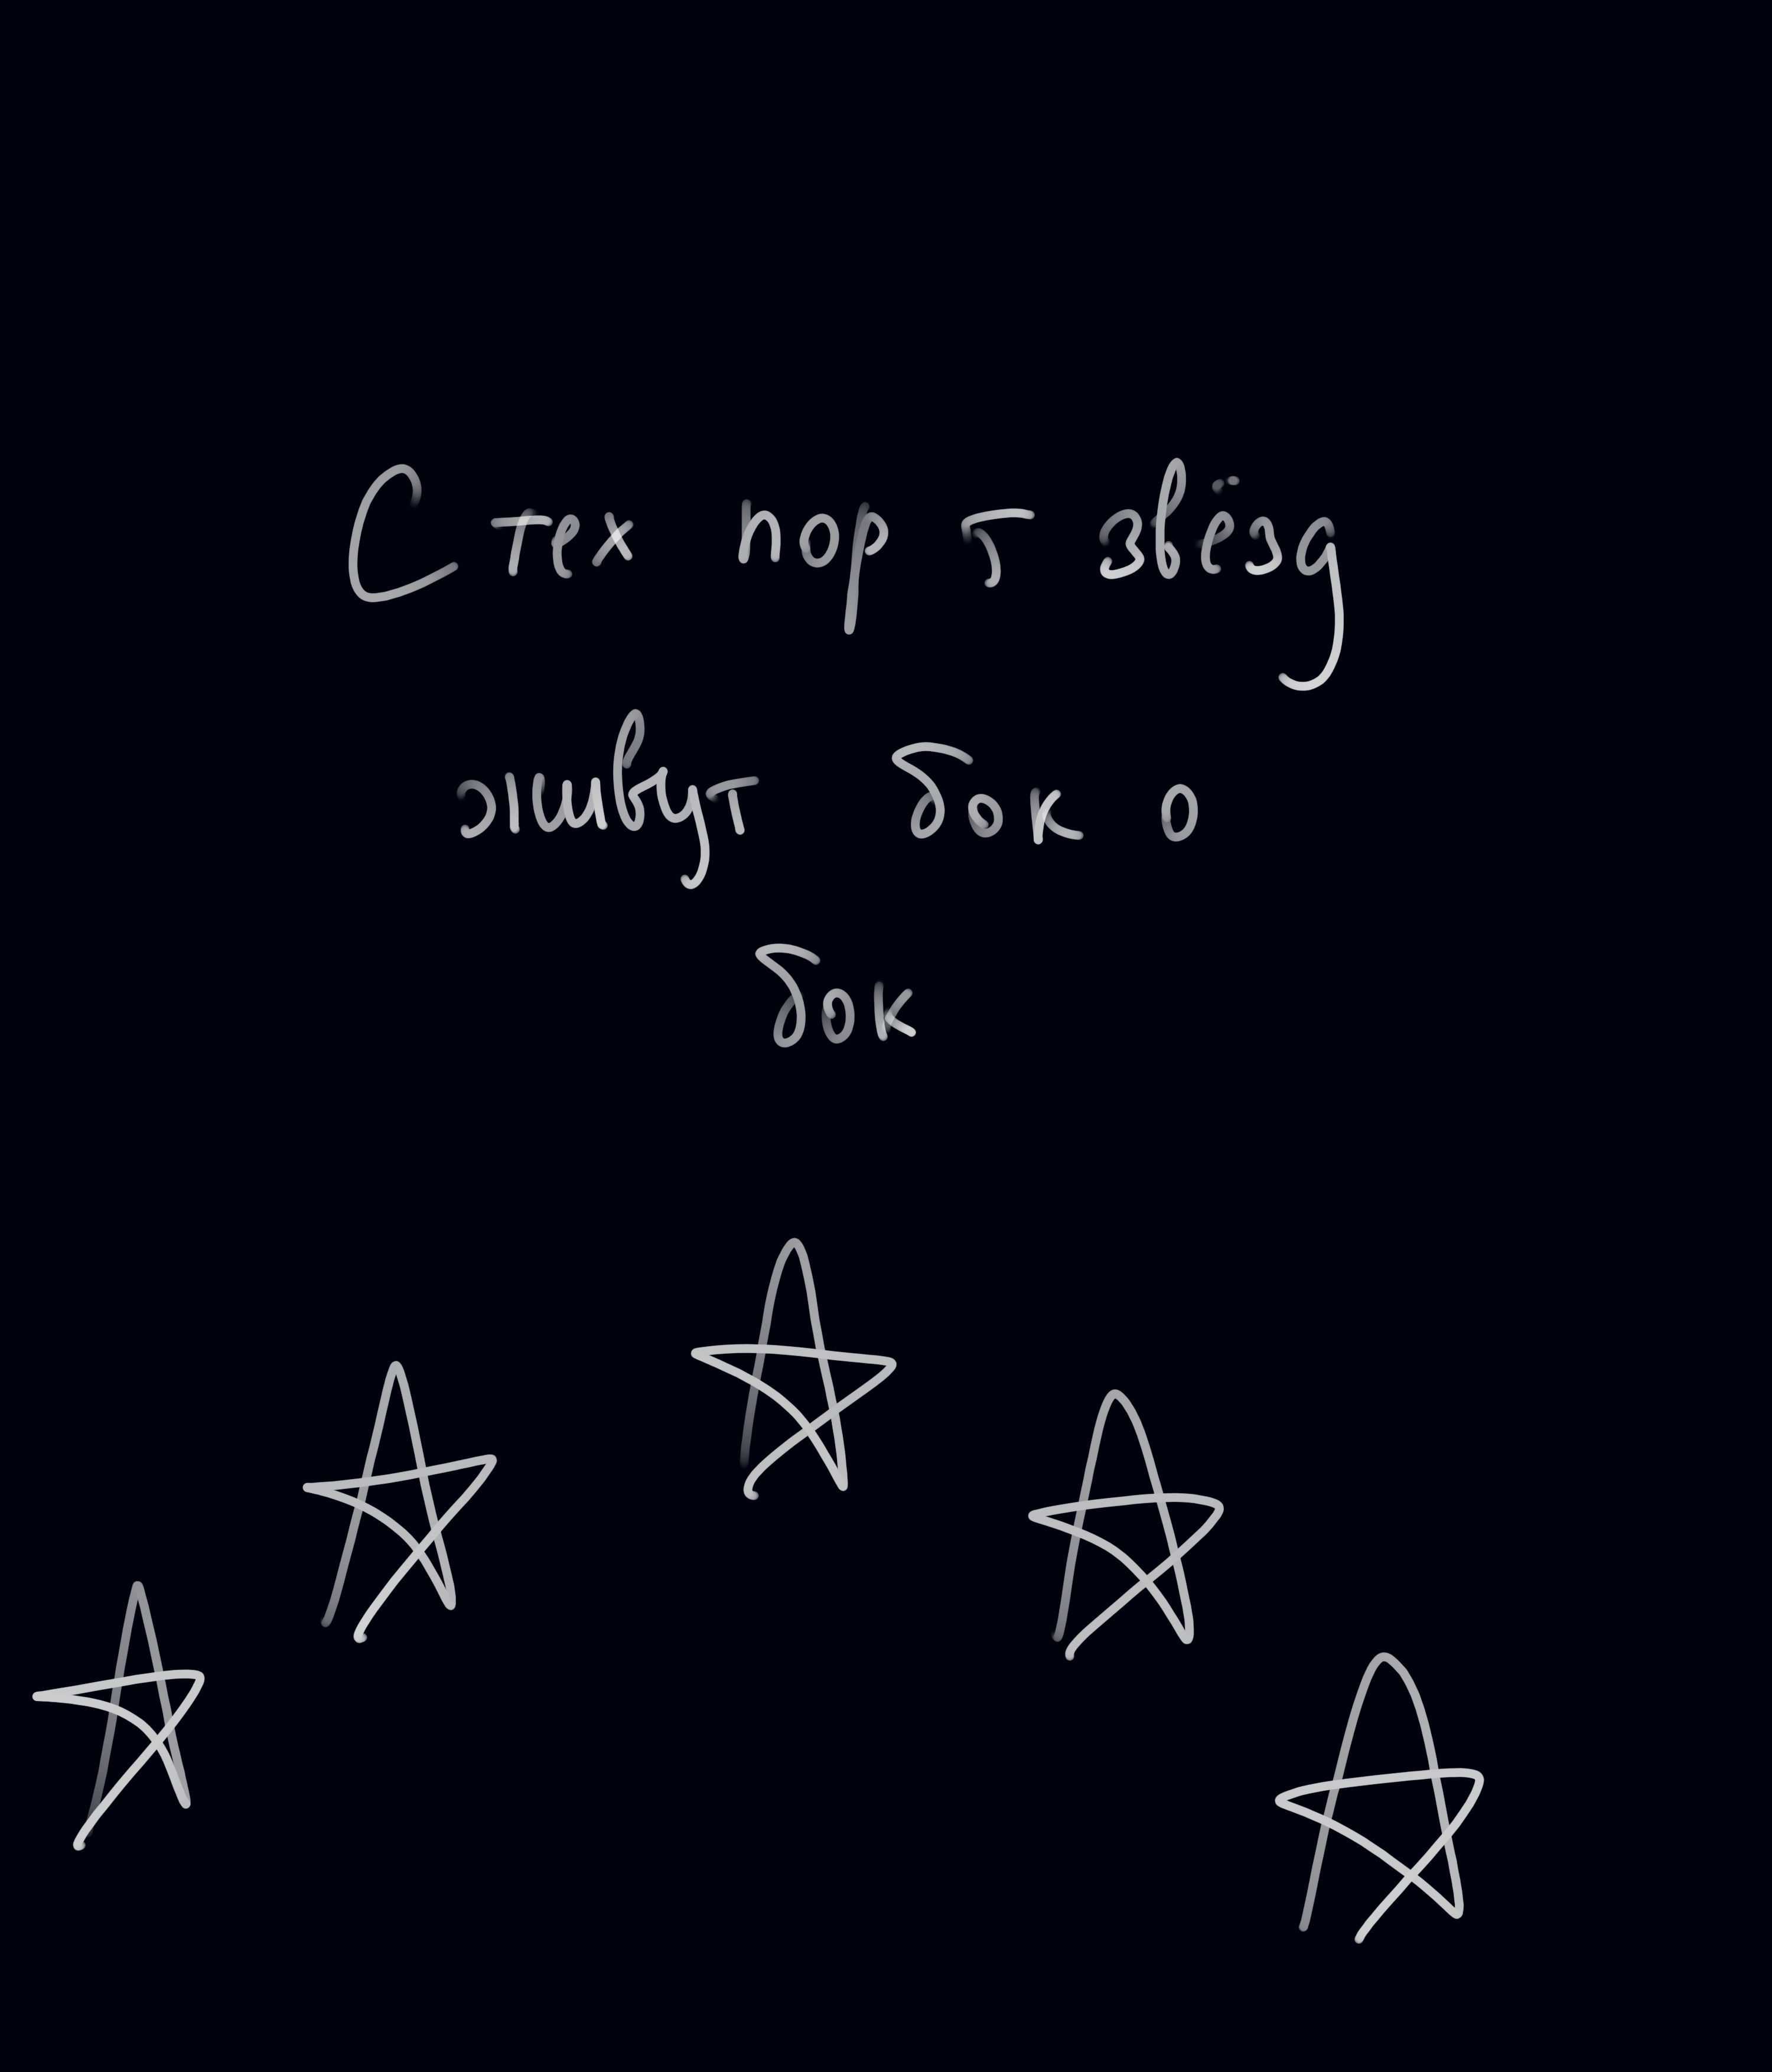 С тех пор 5 звёзд
живут бок о
бок